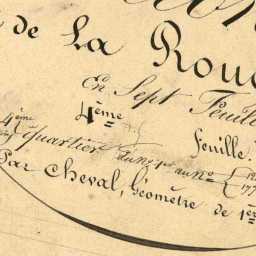 de La Rou
En Sept Feuil
4ème
feuille.
4ème quartier du nº au nº
Par Cheval, Géomètre de 1ère